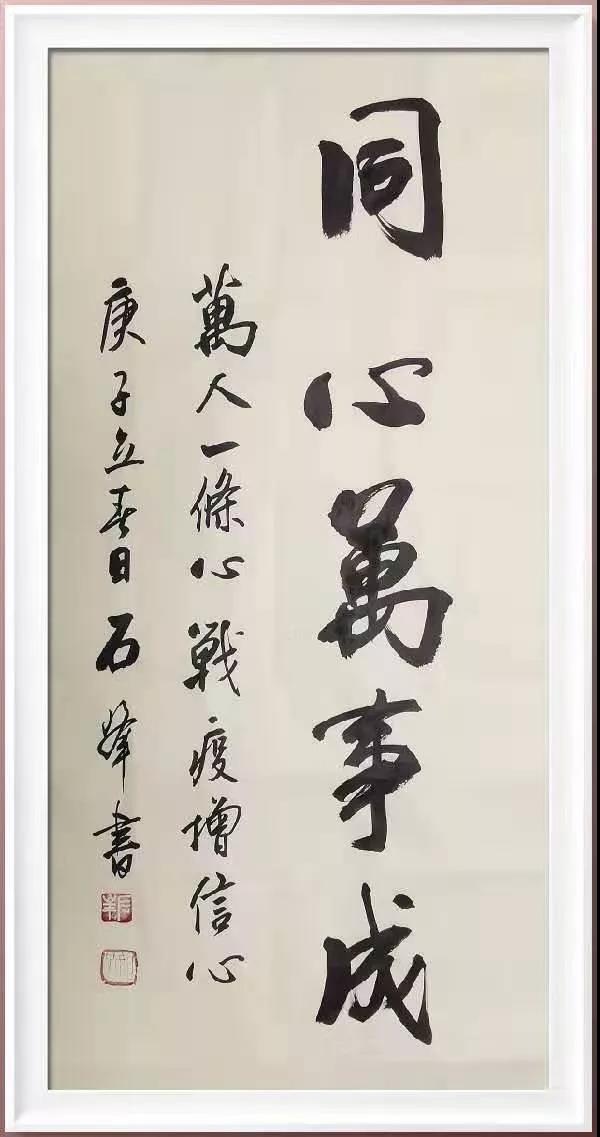 同心萬事成
萬人一條心 戰疫增信心
庚子立春日 石峰書